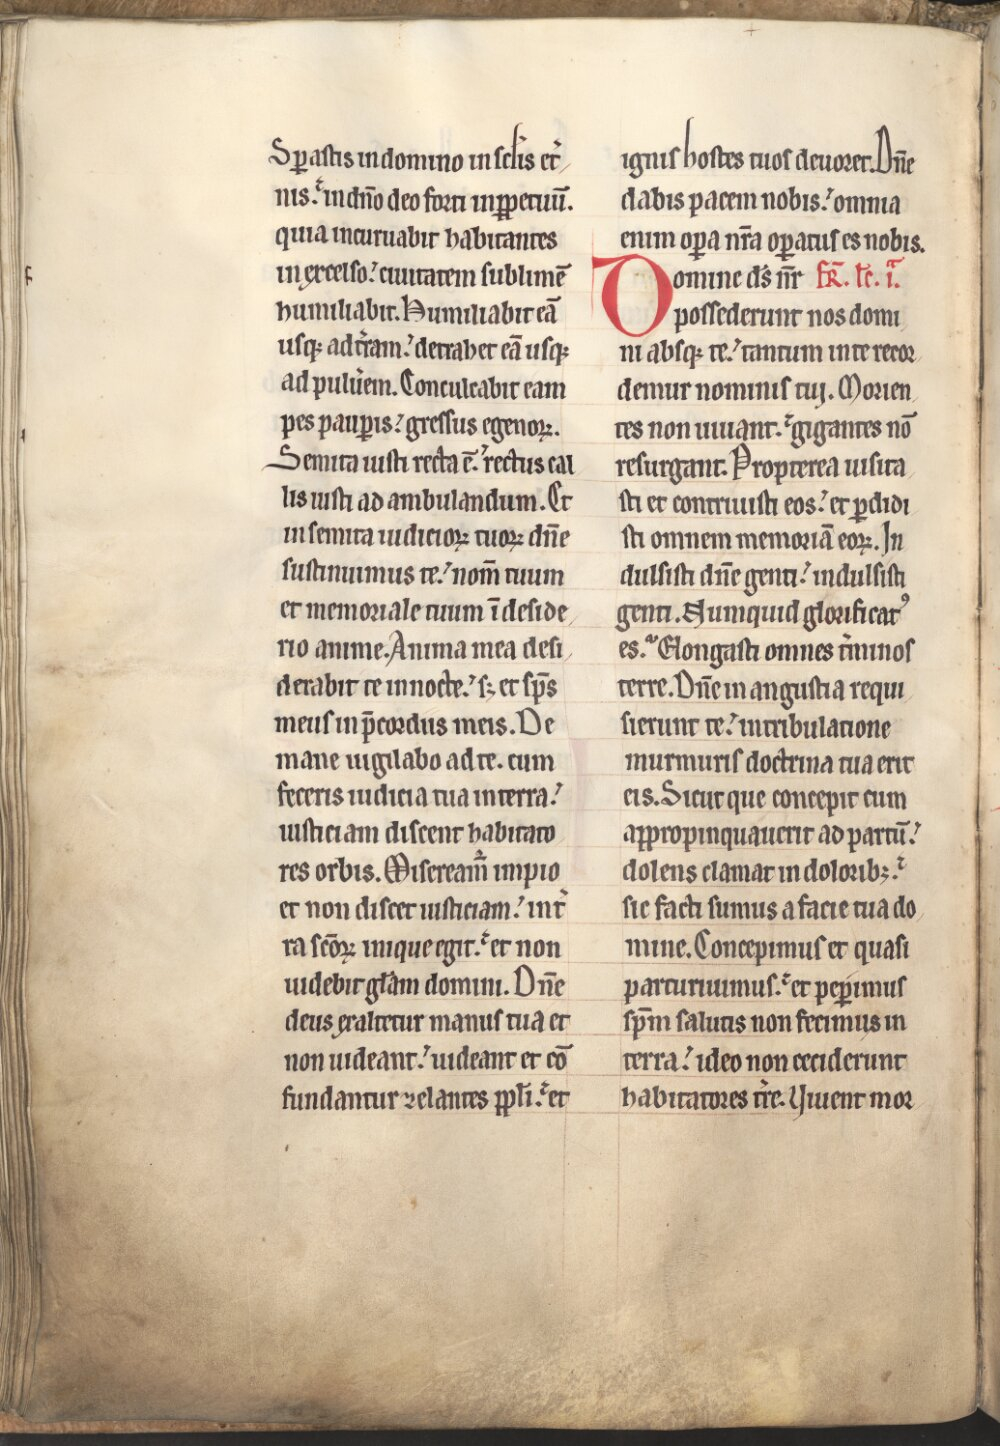 Sꝑastis in domino in sclꝭis et̉
nis. in dn̄o deo forti in ꝑpetuū.
quia incuruabit habitantes
in excelso. ciuitatem sublimē
humiliabit. Humiliabit eā
usqꝫ ad tr̄am. detrahet eā usqꝫ
ad puluẻm. Conculcabit eam
pes pauꝑis. gressus egenoꝝ.
Semita iusti recta ē. rectus cal
lis iusti ad ambulandum. Et
in semita iudicioꝝ tuoꝝ dn̄e
sustinuimus te. nom̄ tuum
et memoriale tuum ī deside
rio anime. Anima mea desi
derabit te in nocte. sꝫ et sp̄s
meus in p̄cordiis meis. De
mane uigilabo ad te. cum
feceris iudicia tua in terra.
iusticiam discent habitato
res orbis. Miseream̄ impio
et non discet iusticiam. in t̉
ra sc̄oꝝ inique egit. et non
uidebit gl̄am domini. Dn̄e
deus exaltetur manus tua et
non uideant. uideant et cō
fundantur zelantes ppl̄i. et
ignis hostes tuos deuoret. Dn̄e
dabis pacem nobis. omnia
enim oꝑa nr̄a oꝑatus es nobis.
Domine ds̄ nr̄ FR̄. lc̄. i.
possederunt nos domi
ni absqꝫ te. tantum in te recor
demur nominis tuj. Morien
tes non uiuant. gigantes nō
resurgant. Propterea uisita
sti et contriuisti eos. et ꝑdidi
sti omnem memoriā eoꝝ. In
dulsisti dn̄e genti. indulsisti
genti. Numquid glorificatꝰ
es. Elongasti omnes t̉minos
terre. Dn̄e in angustia requi
sierunt te. in tribulatione
murmuris doctrina tua erit
eis. Sicut que concepit cum
appropinquauerit ad partū.
dolens clamat in doloribꝫ.
sic facti sumus a facie tua do
mine. Concepimus et quasi
parturiuimus. et peꝑimus
sp̄m salutis non fecimus in
terra. ideo non ceciderunt
habitatores tr̄e. Viuent mor